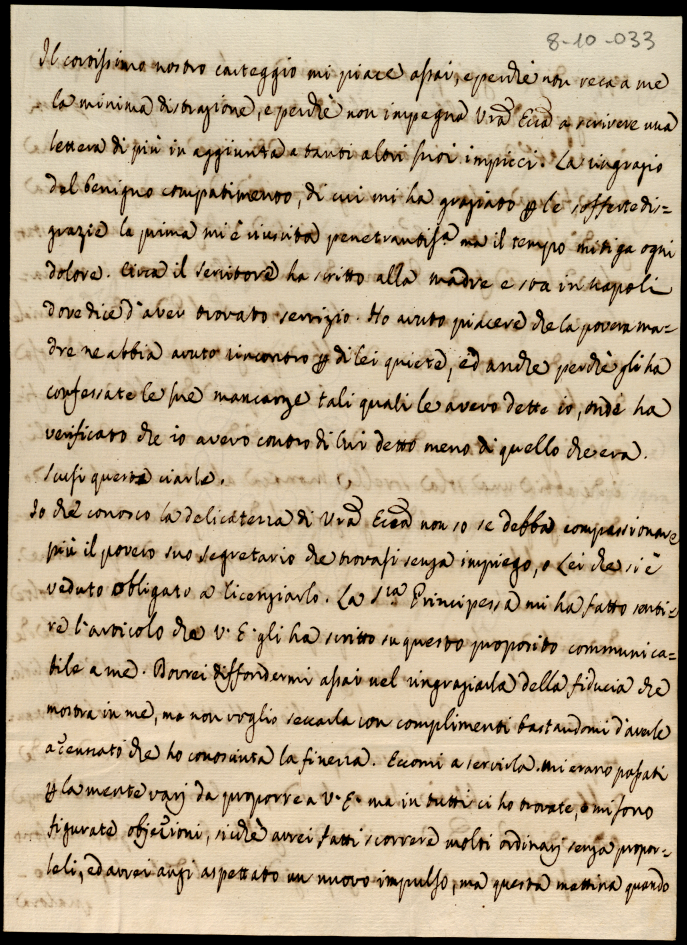 8-10-033
Il cortissimo nostro carteggio mi piace assai, e perchè non reca a me
la minima distrazione, e perchè non impegna Vra Ecca a scrivere una
lettera di più in aggiunta a tanti altri suoi impicci. La ringrazio
del benigno compatimento, di cui mi ha graziato p le sofferte dis=
grazie la prima mi è riuscita penetrantissa ma il tempo mitiga ogni
dolore. Circa il servitore ha scritto alla madre e sta in Napoli
dove dice d'aver trovato servizio. Ho avuto piacere che la povera ma=
dre ne abbia avuto rincontro p di lei quiete, ed anche perchè gli ha
confessate le sue mancanze tali quali le avevo dette io, onde ha
verificato che io avevo contro di lui detto meno di quello che era.
Scusi questa ciarla.
Io che conosco la delicatezza di Vra Ecca non so se debba compassionare
più il povero suo segretario che trovasi senza impiego, o Lei che si è
veduto obligato a licenziarlo. La Sra Principessa mi ha fatto senti=
re l'articolo che V. E. gli ha scritto su questo proposito communica=
bile a me. Dovrei diffondermi assai nel ringraziarla della fiducia che
mostra in me, ma non voglio seccarla con complimenti bastandomi d'averle
accennato che ho conosciuta la finezza. Eccomi a servirla. Mi erano passati
p la mente varj da proporre a V. E. ma in tutti ci ho trovate, o mi sono
figurate objezioni, sichè avrei fatti scorrere molti ordinarj senza propor=
celi, ed avrei anzi aspettato un nuovo impulso, ma questa mattina quando